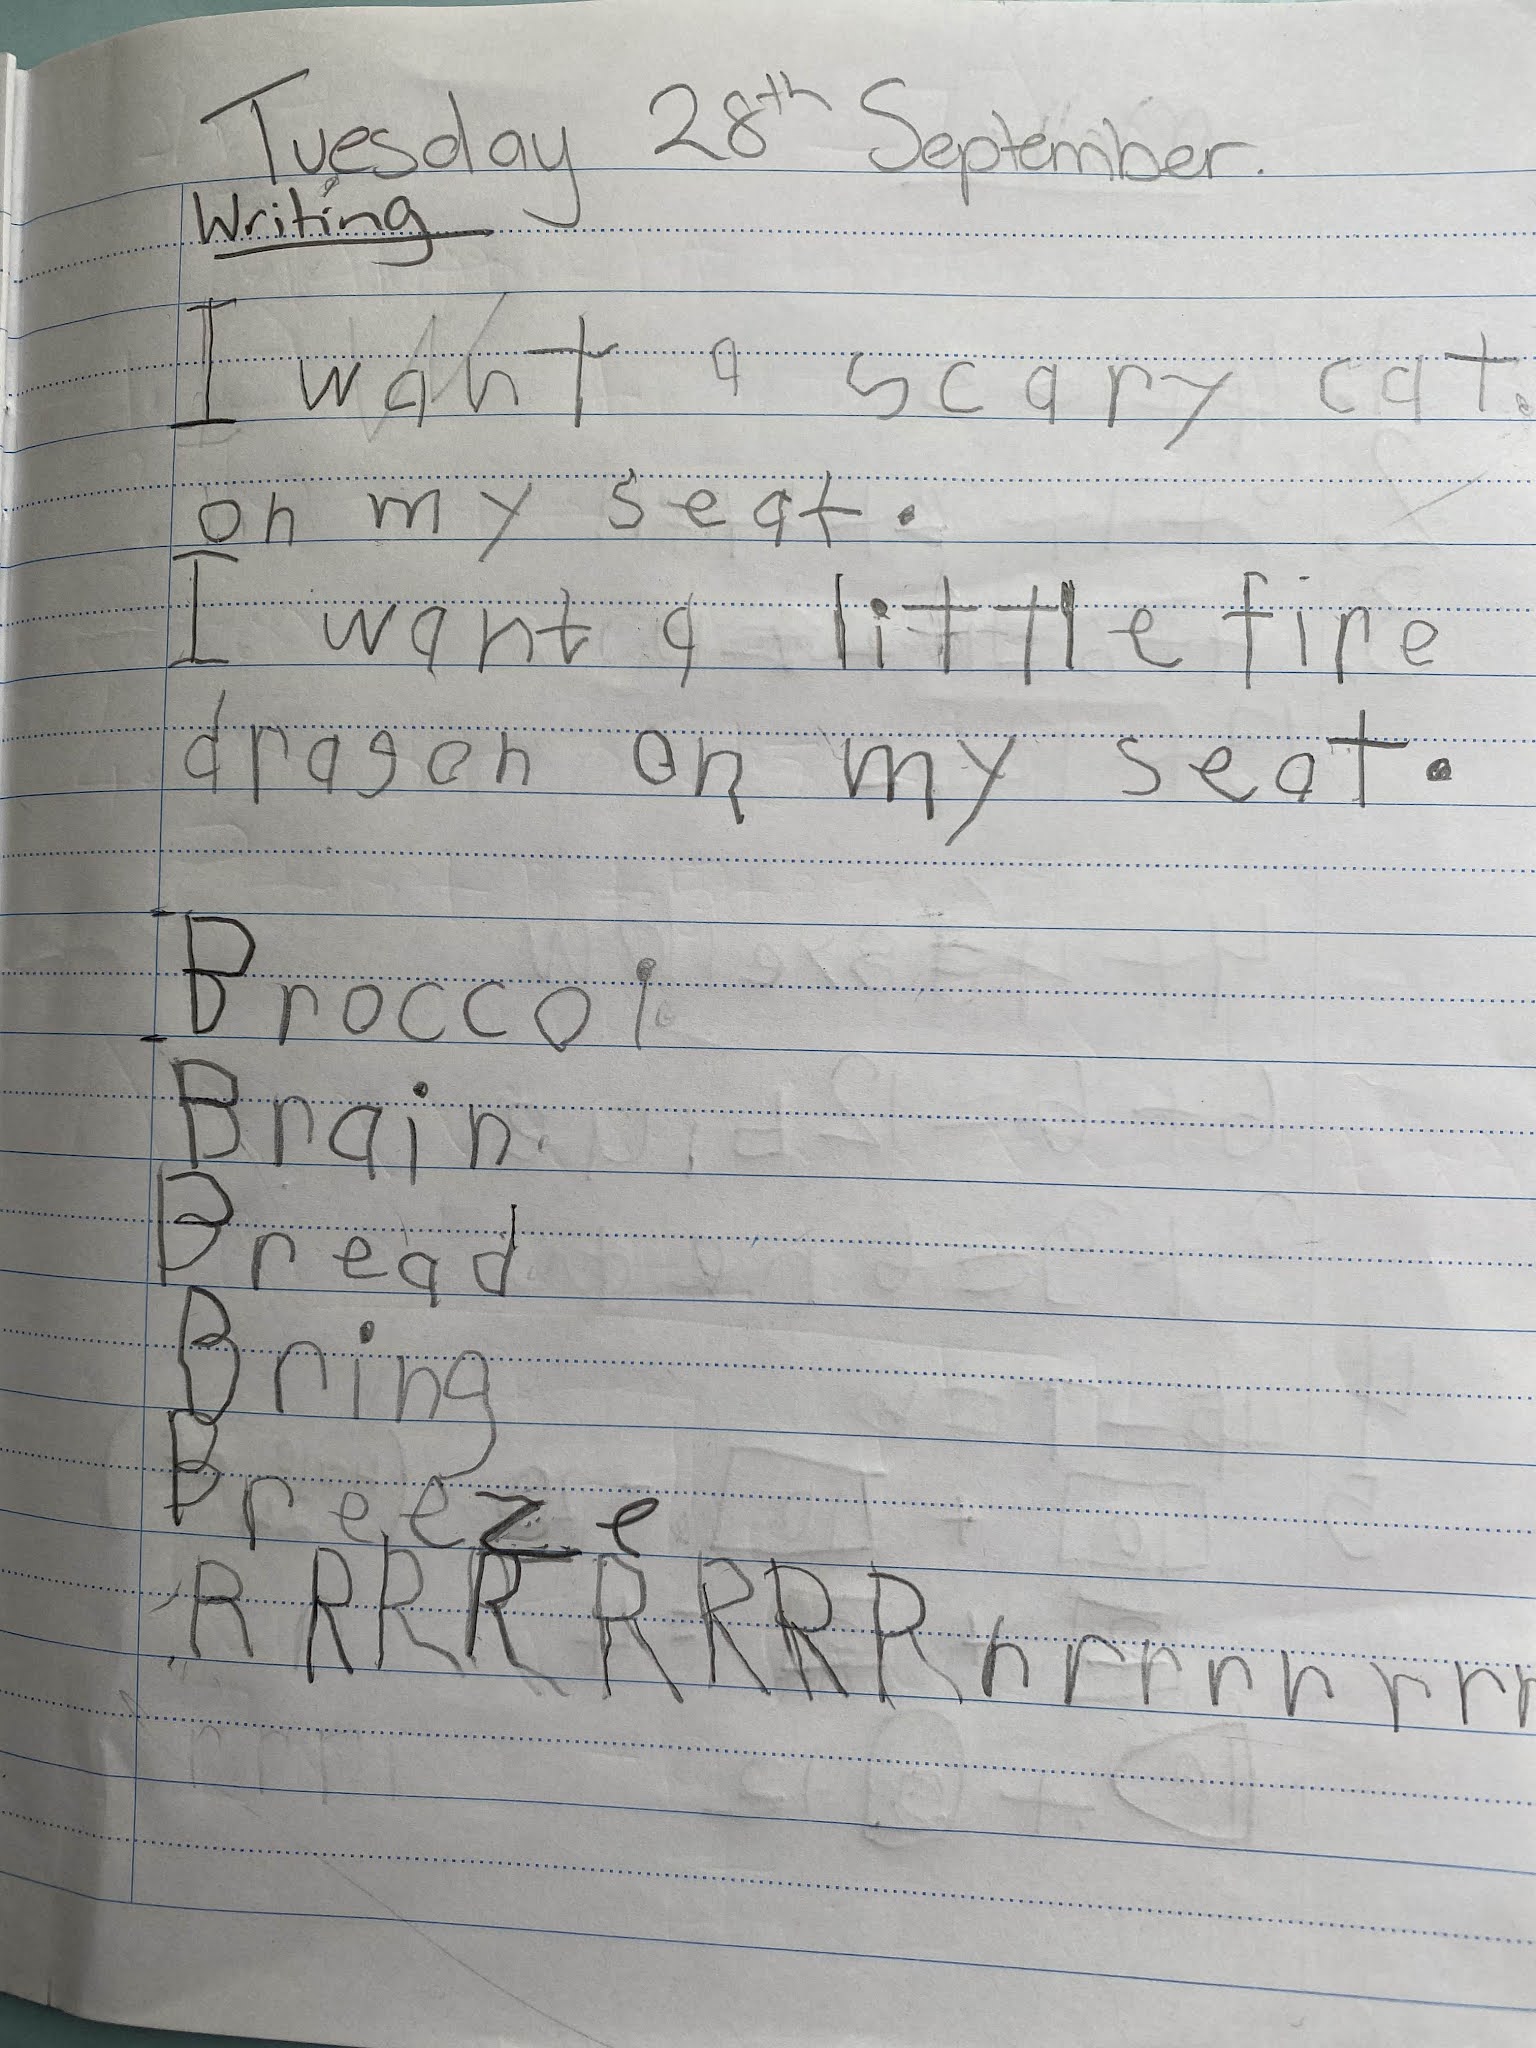 Tuesday 28th September.
Writing
I want a scary cat.
on my seat.
I want a little fire
dragon on my seat.
Broccoi
Brain
Bread
Bring
Breeze
R R R R R R R R r r r r r r r r